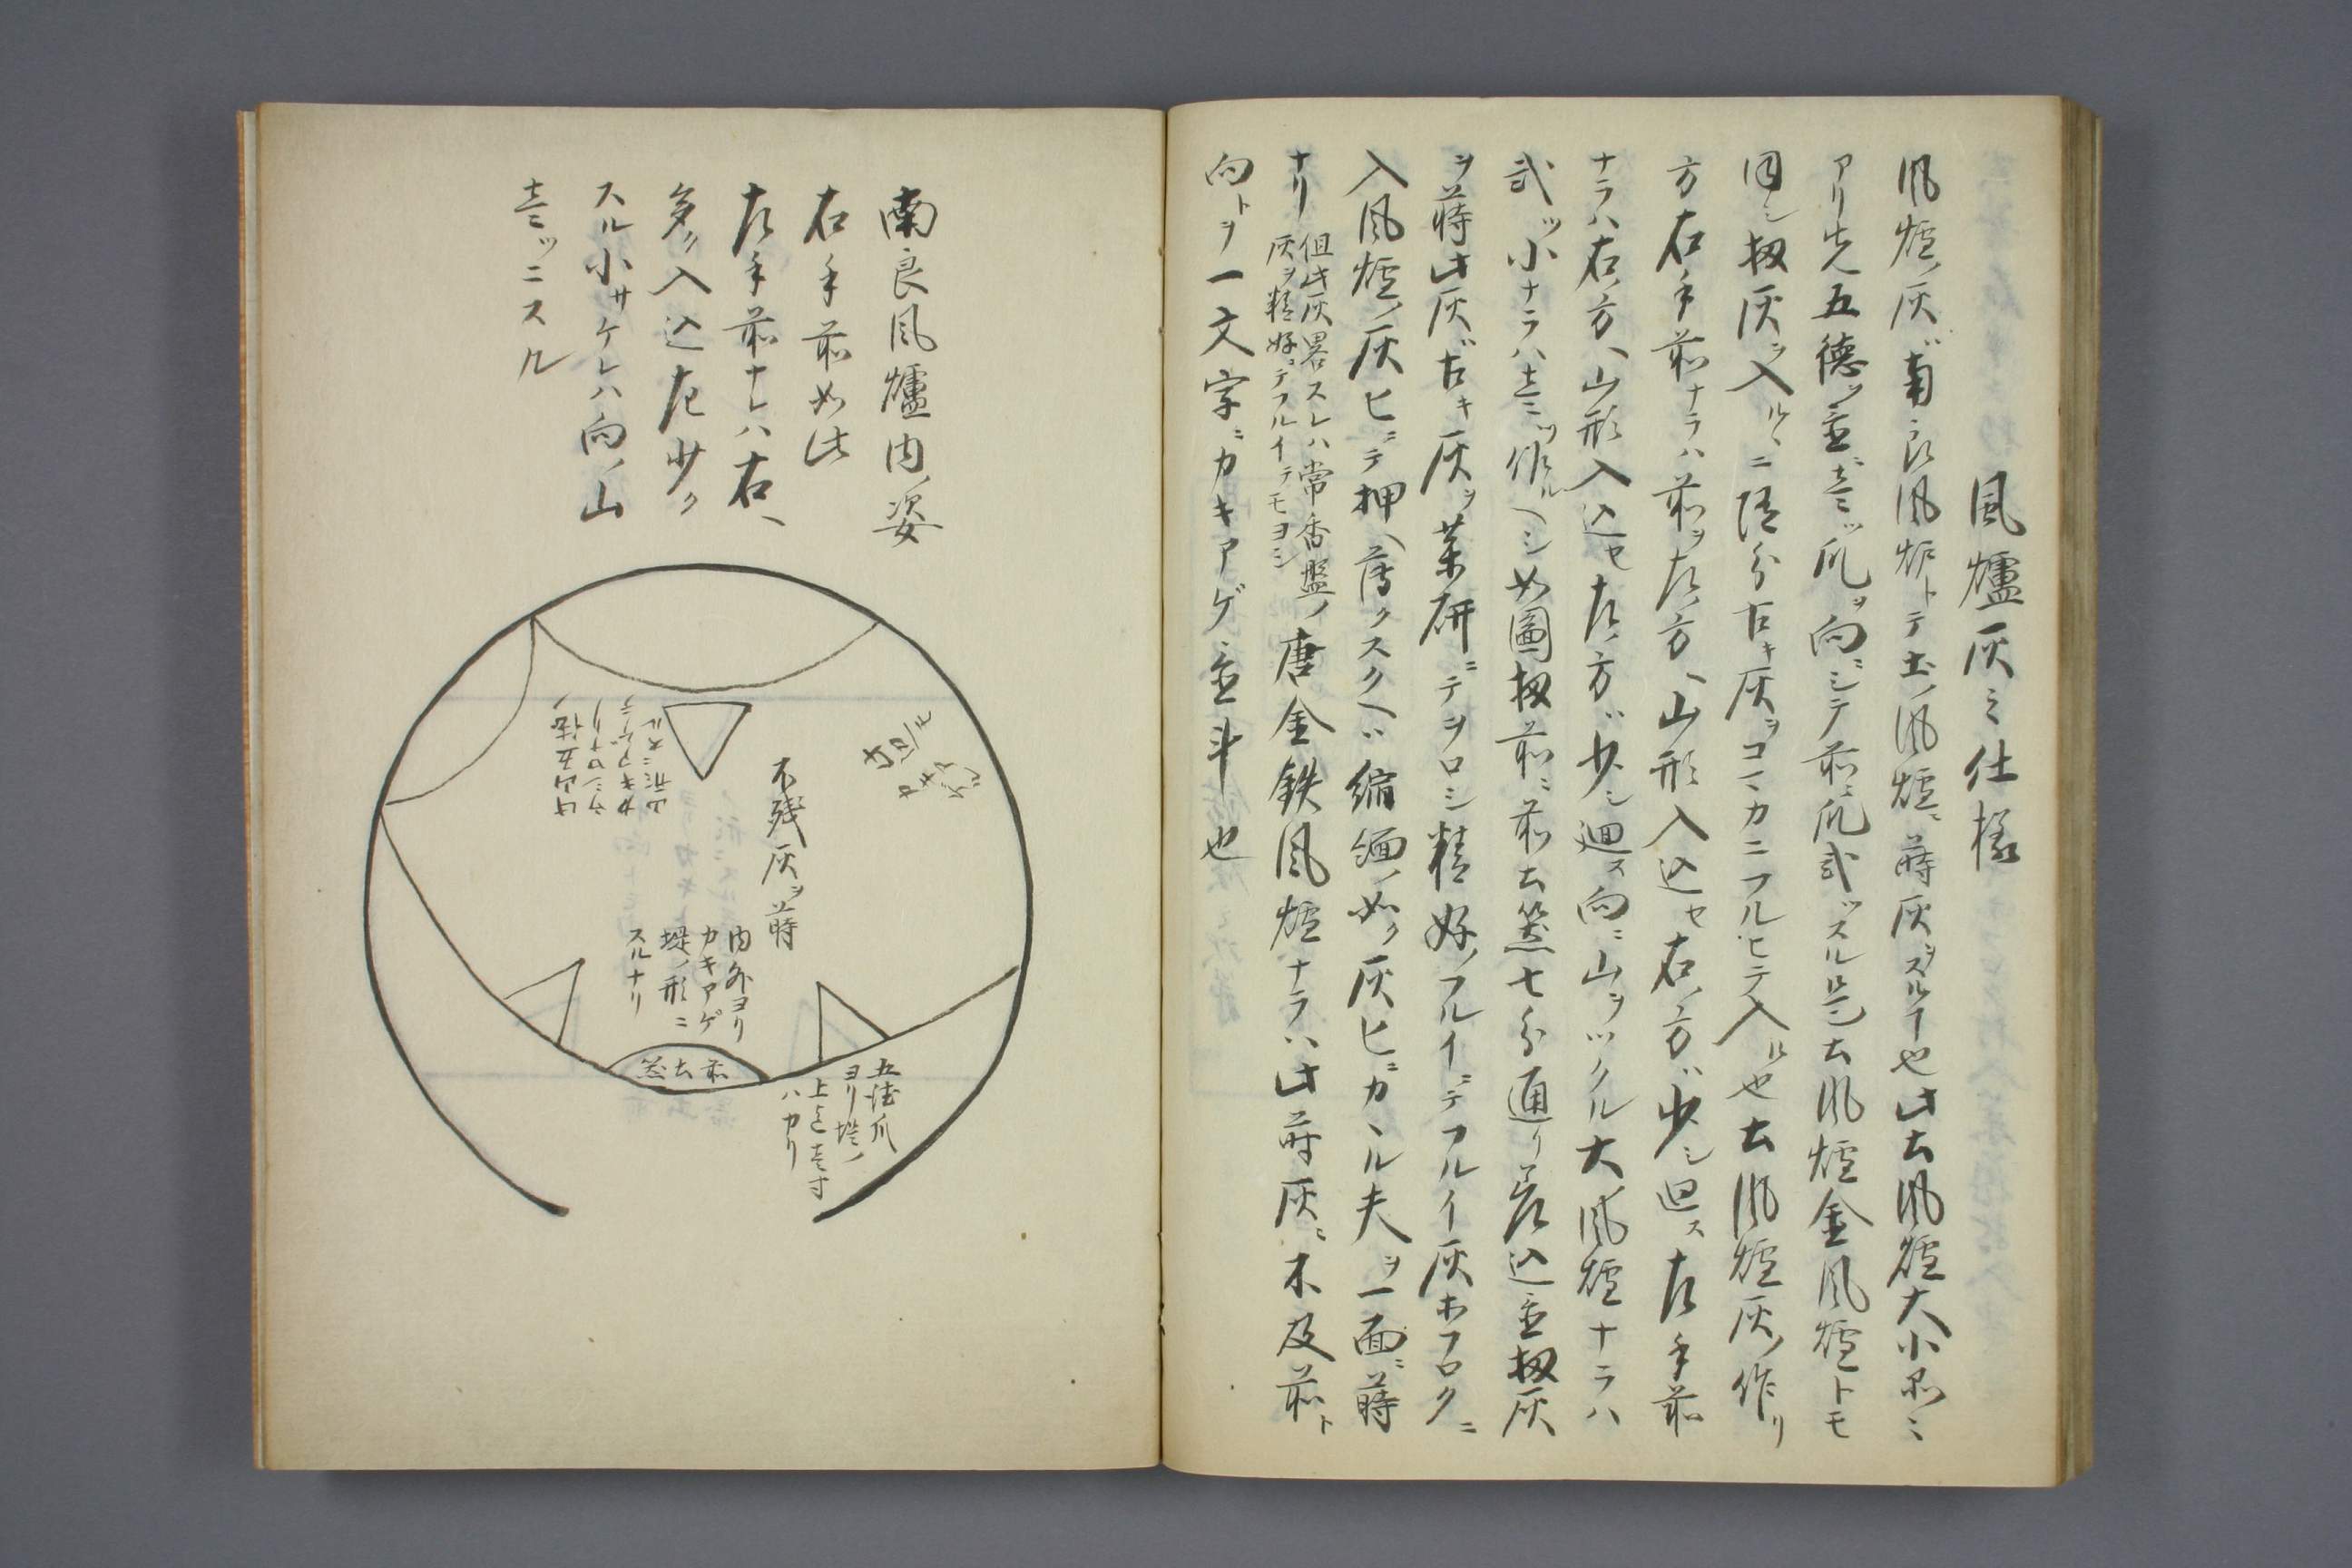 風爐灰之仕様
風爐ノ灰ハ南良風炉トテ土ノ風爐ニ蒔灰ヲスル也此土風爐大小品々
アリ先五德ヲ並ニ壱ツ爪ヲ向ニシテ前ニ爪弐ツスル是ハ土風爐金風爐トモ
同シ扨灰ヲ入ルヽニ随分古キ灰ヲコマカニフルヒテ入ル也土風爐灰ノ作リ
方右手前ナラハ前ヲ左ノ方ヘ山形入込セ右ノ方ハ少シ廻ス左手前
ナラハ右ノ方ヘ山形入込セ左ノ方ハ少シ廻ス向ニ山ヲツクル大風爐ナラハ
弐ツ小ナラハ壱ツ作ルヘシ如圖扨前ニ前土器七分通リ差込並扨灰
ヲ蒔此灰ハ古キ灰ヲ薬研ニテヲロシ精好ノフルイニテフルイ灰ホフロクニ
入風爐ノ灰ヒニテ押ヘ薄クスクヘハ縮緬ノ如ク灰ヒニカヽル夫ヲ一面ニ蒔
ナリ
但此灰畧スレハ常香盤ノ
灰ヲ精好ニテフルイテモヨシ
唐金鉄風爐ナラハ此蒔灰ニ不及前ト
向トヲ一文字ニカキアゲ並斗也
南良風爐内ノ姿
右手前如此
左手前ナレハ右ヘ
多ク入込左少ク
スル小サケレハ向ノ山
壱ツニスル
不残灰ヲ蒔
内外ヨリ
カキアゲ
堤ノ形ニ
スルナリ
前土器
五德爪
ヨリ堤ノ
上迄壱寸
ハカリ
山形ニスル
カキアゲテ
ウシロヨリ
此山五德ノ